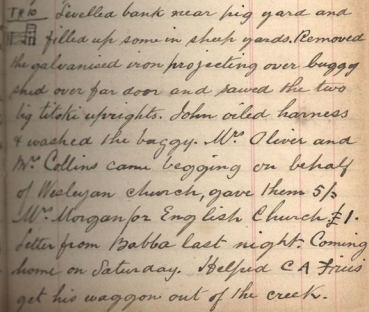 Levelled bank near pig yard and
filled up some in sheep yards. Removed
the galvanised iron projecting over buggy
shed over far door and sawed the two
big titoki uprights. John oiled harness
& washed the buggy. Mrs Oliver and
Mrs Collins came begging on behalf
of Wesleyan church, gave them 5/-
Mrs Morgan for English Church £1.
Letter from Babba last night. Coming
home on Saturday. Helped C A
get his waggon out of the creek.